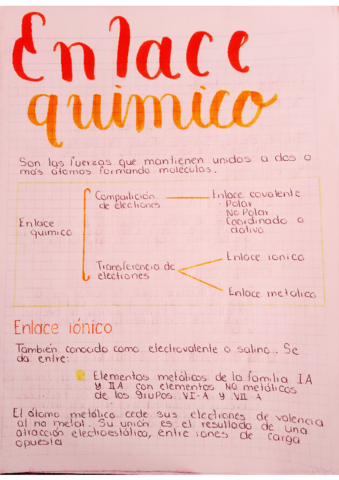 Enlace
quimico
Son las fuerzas que mantienen unidos a dos o
más átomos formando moléculas.
Enlace
quimico
Compartición
de electrones
Enlace covalente
Polar
No Polar
Coordinado o
dativo
Transferencia de
electrones
Enlace ionico
Enlace metalico
Enlace iónico
También conocido como electrovalente o salino. Se
da entre:
Elementos metálicos de la familia IA
y IIA con elementos NO metálicos
de los grupos VI-A y VII A
El átomo metálico cede sus electrones de valencia
al no metal. Su unión es el resultado de una
atracción electroestática, entre iones de carga
opuesta